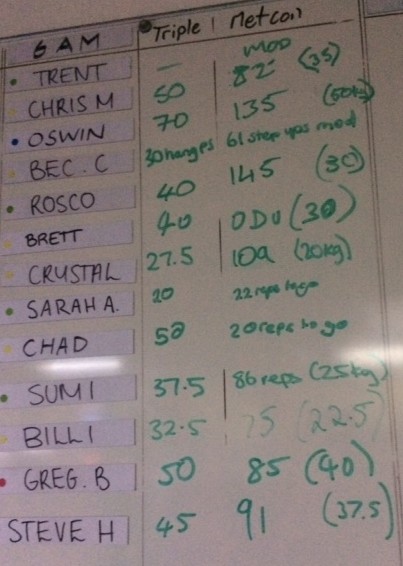 6 AM Triple Metcon
TRENT — MOD 82 (35)
CHRIS M 50 135 (50kg)
OSWIN 70 61 step ups mod
BEC. C 30 hangps 145 (30)
ROSCO 40
BRETT 40 ODU (30)
CRYSTAL 27.5 109 (20kg)
SARAH A. 20 22 reps to go
CHAD 50 20 reps to go
SUMI 37.5 86 reps (25kg)
BILLI 32.5 75 (22.5)
GREG. B 50 85 (40)
STEVE H 45 91 (37.5)